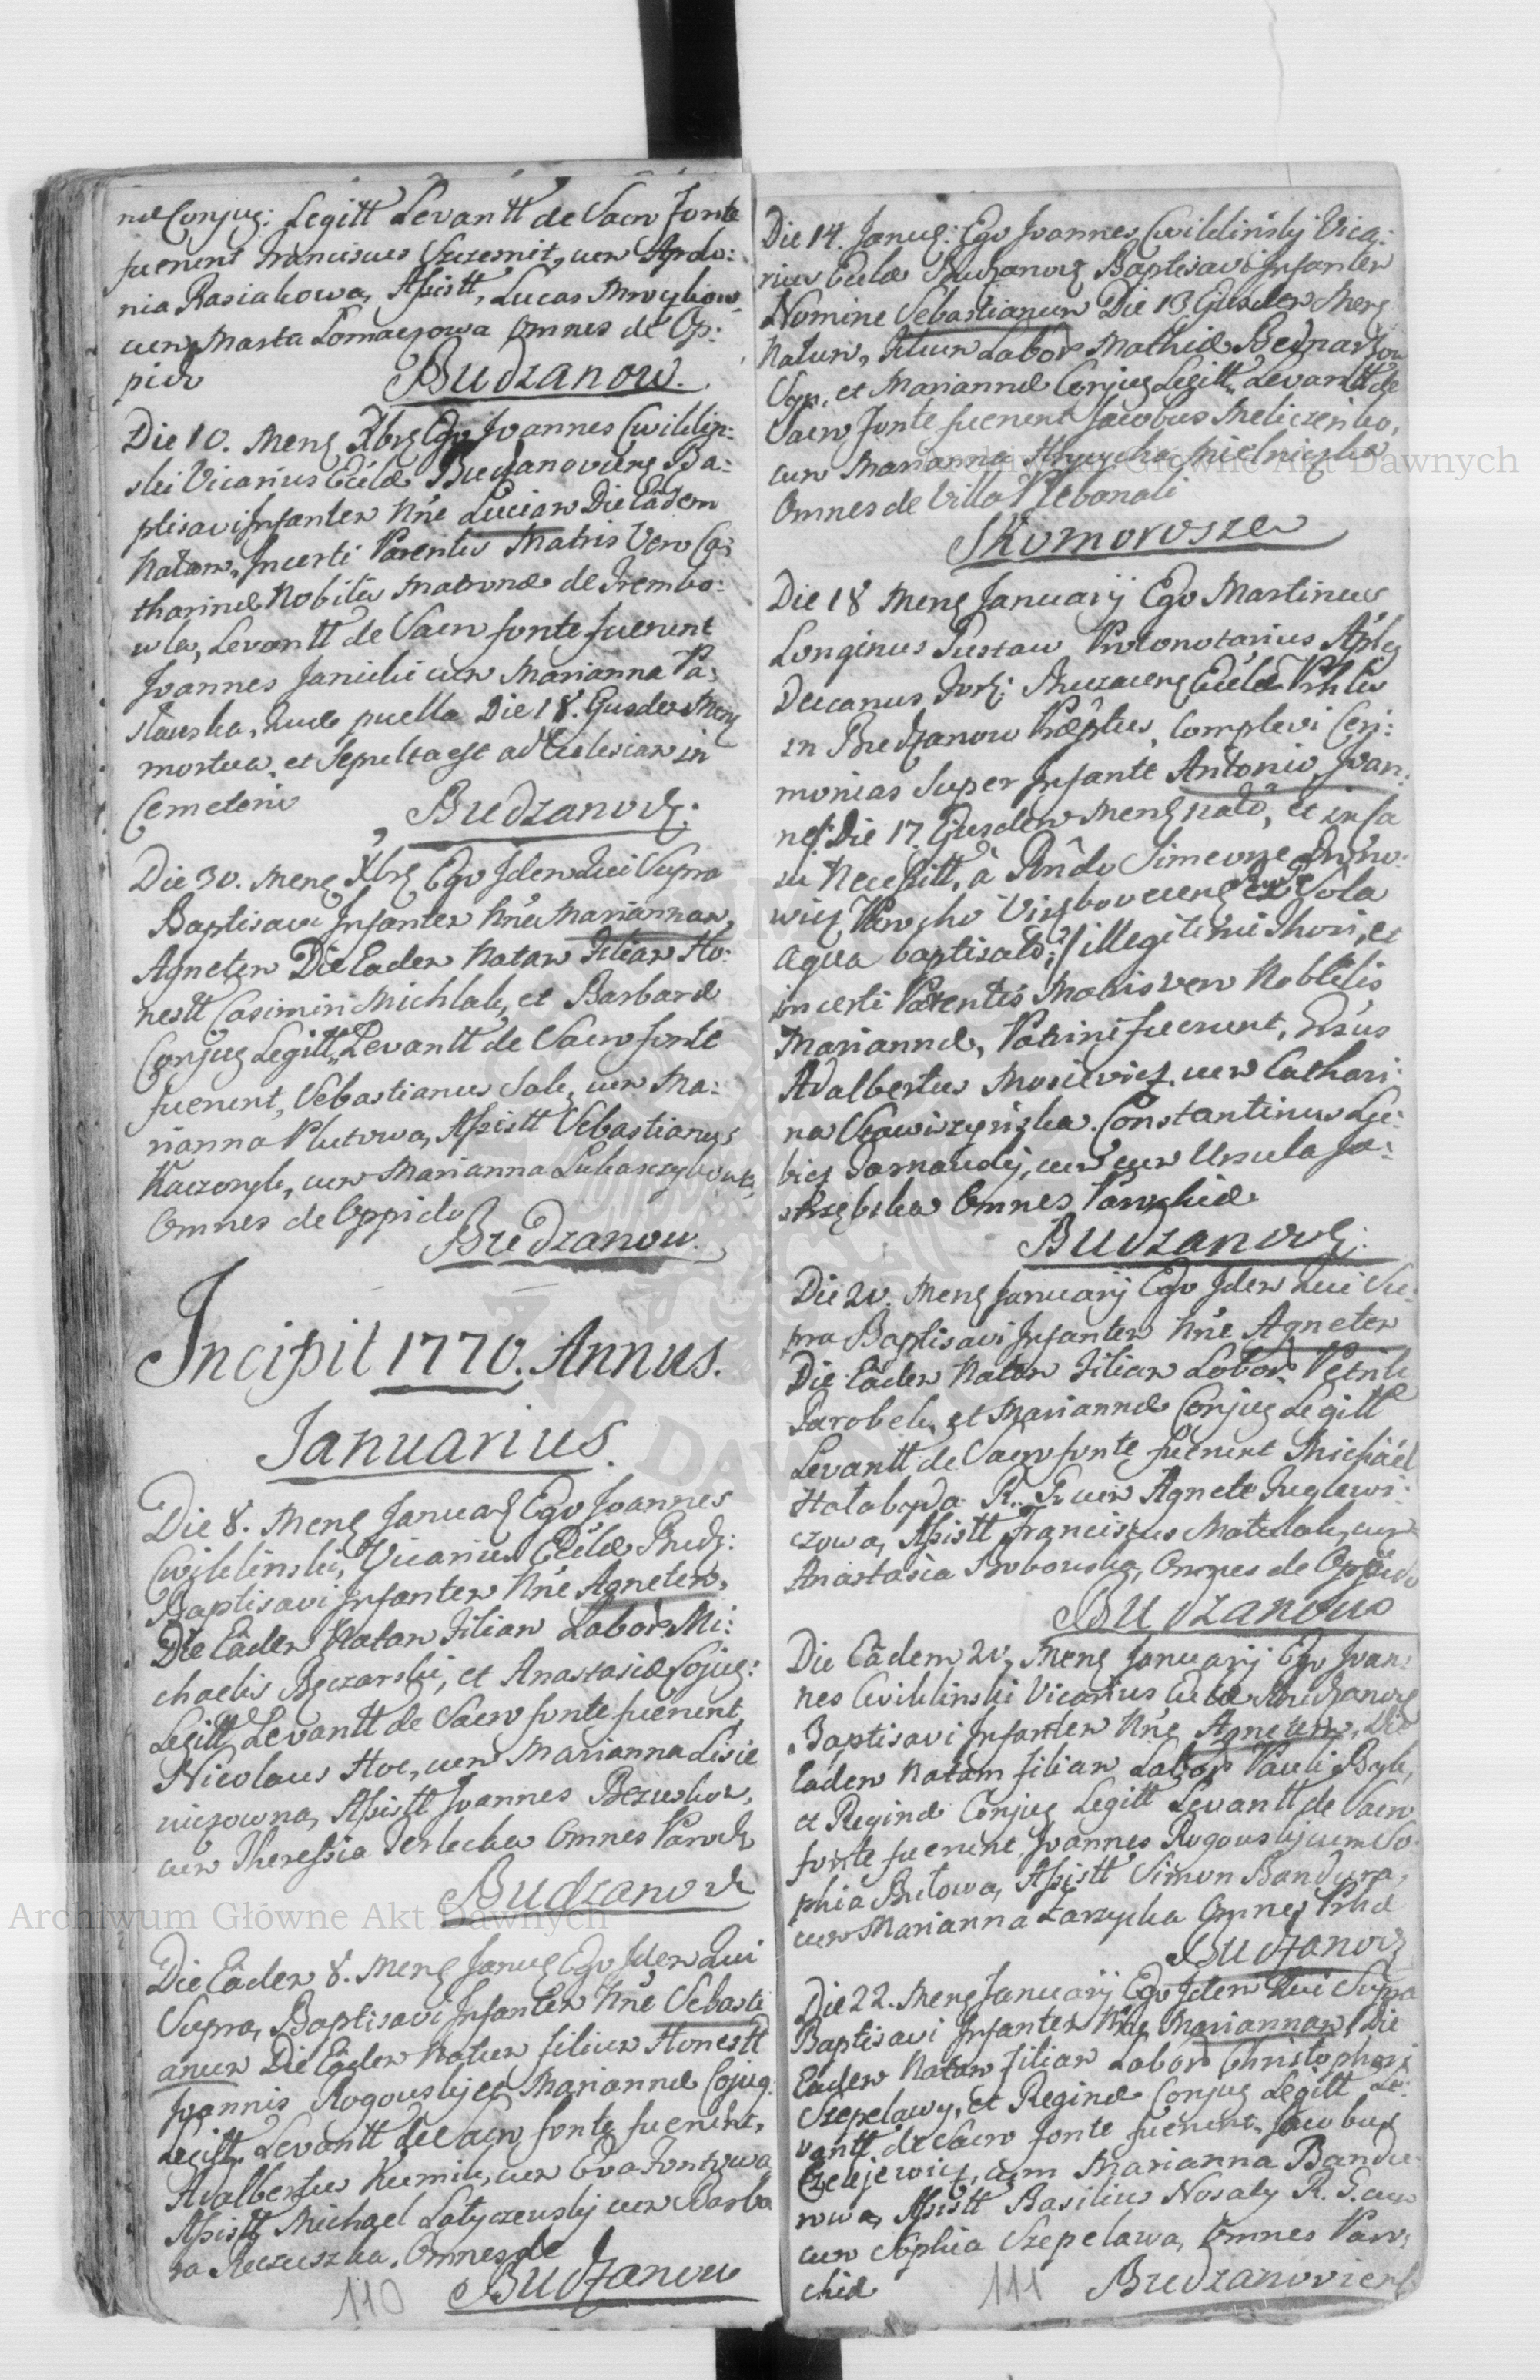 næ Conjug: Legitt Levantt de Sacro fonte
fuerunt Franciscus Szczesnik, cum Apolo:
nia Rasiakowa, Assistt, Lucas
cum Marta Tomaczowa Omnes de Op:
pido Budzanow.
Die 10. Mens Xbris Ego Joannes Cwiklin:
ski Vicarius Eccl̃æ Budzanoviens Ba:
ptisavi Infantem N̄ne Luciam Die Eâdem
Natam, Incerti Parentis Matris Vero Ca:
tharinæ Nobilis Matronæ de Trembo:
wla, Levantt de Sacro fonte fuerunt
Joannes Janicki cum Marianna Pa:
sławska, Quæ puella Die 18. Ejusdem Mens
mortua, et Sepulta est ad Ecclesiam in
Cemeterio Budzanov:
Die 30. Mens Xbris Ego Idem Qui Supra
Baptisavi Infantem N̄ne Mariannam,
Agnetem Die Eadem Natam Filiam Ho:
nestt Casimiri Michlak, et Barbaræ
Conjug Legitt, Levantt de Sacro fonte
fuerunt, Sebastianus Sok, cum Ma:
rianna Plutowa, Assistt Sebastianus
Kaczoryk, cum Marianna
Omnes de Oppido Budzanow.
Incipit 1770. Annus.
Januarius.
Die 8. Mens Januar Ego Joannes
Cwiklinski, Vicarius Eccl̃æ Budz:
Baptisavi Infantem N̄ne Agnetem,
Die Eâdem Natam Filiam Labor Mi:
chaelis Beczarski, et Anastasiæ Cojug:
Legitt, Levantt de Sacro fonte fuerunt,
Nicolaus Hoc, cum Marianna Lisie
wiczowna, Assistt Joannes
cum Theressia Terlecka Omnes Paroch
Budzanov
Die Eâdem 8. Mens Janu Ego Idem Qui
Supra, Baptisavi Infantem N̄ne Sebasti
anum Die Eâdem Natum, filium Honestt
Joannis Rogouskj et Mariannæ Cojug
Legitt, Levantt de Sacro fonte fuerunt,
Adalbertus Kumik, cum Eva Fontowa
Assistt Michael Latyczewskj cum Barba
ra Omnes de
110 Budzanow
Die 14. Janu: Ego Joannes Cwiklinskj Vica:
rius Eccl̃æ Budzanov Baptisavi Infantem
Nomine Sebastianum Die 13. Ejusdem Mens
Natum, Filium Labor Mathiæ
et Mariannæ Conjug Legitt, Levantt de
Sacro fonte fuerunt Jacobus Meliczenko,
cum Marianna Mielniczka
Omnes de Villa Plebanali
Skomorosze
Die 18 Mens Januarij Ego Martinus
Longinus Pustaw Protonotarius Ap̃lcs
Decanus Eccl̃æ
in Budzanow Præptus, Complevi Cæri:
monias Super Infante Antonio, Joan:
ne /: Die 17. Ejusdem Mens nato, et in ca
su Necessitt, â Rñdo Simeone
Parocho sola
aqua baptisato :/ illegitimi Thori, et
incerti Parentis Matris vero Nobilis
Mariannæ, Patrini fuerunt,
Adalbertus cum Cathari:
na Constantinus
cum Ursula Ja:
strzębska Omnes Parochiæ
Budzanov:
Die 20. Mens Januarij Ego Idem Qui Su:
pra Baptisavi Infantem N̄ne Agnetem
Die Eâdem Natam Filiam Labor Petri
Parobek, et Mariannæ Conjug Legitt
Levantt de Sacro fonte fuerunt Michaël
Hałabyda R. cum Agnete Juglewi:
czowa, Assistt Franciscus Matulak, cum
Anastasia Bobowska, Omnes de Oppido
Budzanow
Die Eâdem 20, Mens Januarij Ego Joan:
nes Cwiklinski Vicarius Eccl̃æ Budzanov
Baptisavi Infantem N̄ne Agnetem, Die
Eadem Natam filiam Labor Pauli Byk,
et Reginæ Conjug Legitt Levantt de Sacro
fonte fuerunt, Joannes Rogouskj cum So:
phia Butowa, Assistt Simon Bandura,
cum Marianna Zarzycka Omnes
Budzanov
Die 22. Mens Januarij Ego Idem Qui Supra
Baptisavi Infantem N̄ne Mariannam, Die
Eadem Natam Filiam Labor Christophorj
Szepelawy, et Reginæ Conjug Legitt Le:
vantt de Sacro fonte fuerunt, Jacobus
cum Marianna Bandu:
rowa, Assistt Basilius Nosaty R. G. cum
cum Sophia Szepelawa, Omnes Paro:
chiæ 111 Budzanoviens
Archiwum Główne Akt Dawnych
Archiwum Główne Akt Dawnych